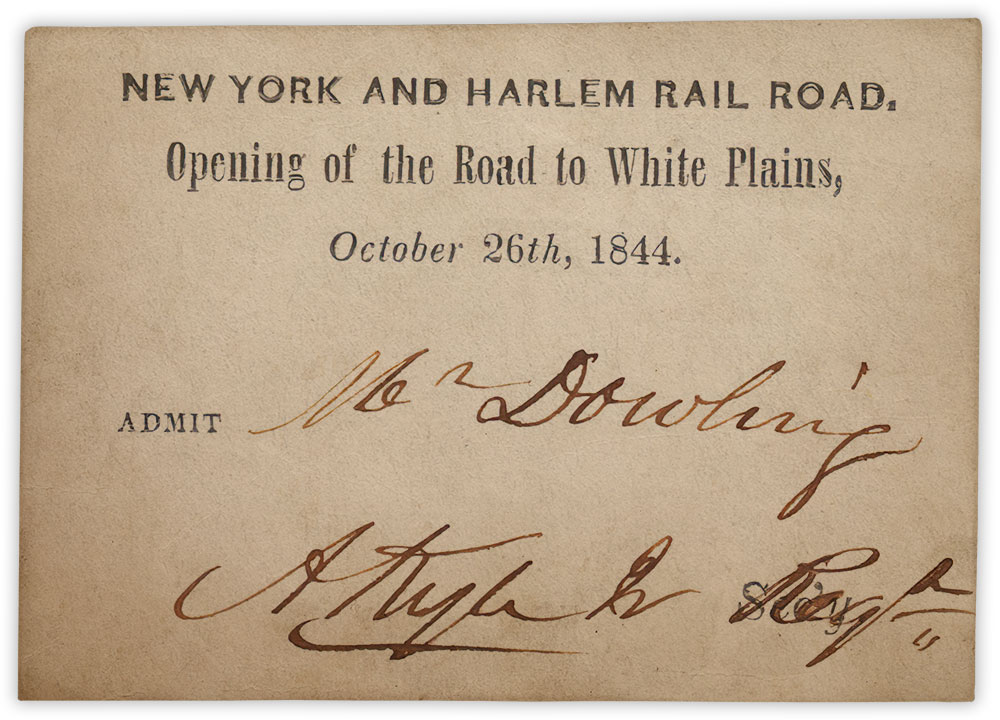 NEW YORK AND HARLEM RAIL ROAD.
Opening of the Road to White Plains,
October 26th, 1844.
ADMIT Mr Dowling
A Kyle Jr Sec'y